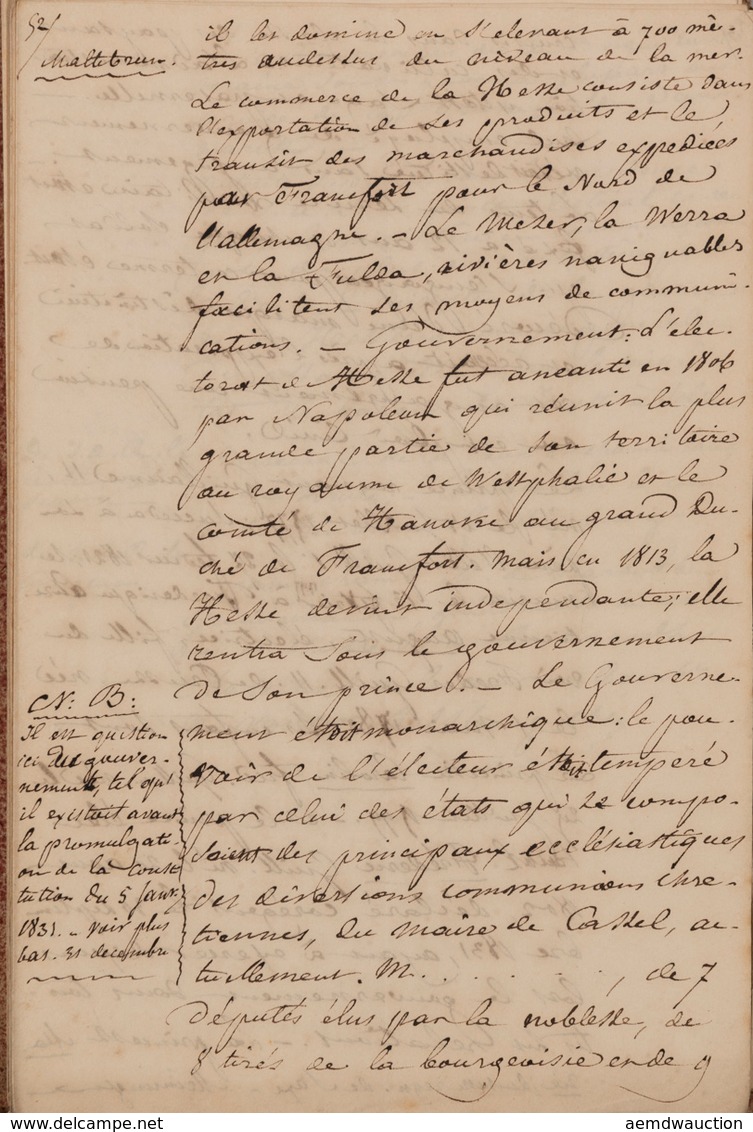 52/
Maltebrun.
il les domine en s'elevant à 700 mè-
tres audessus du niveau de la mer.
Le commerce de la Hesse consiste dans
l'exportation de ses produits et le
transit des marchandises expediées
par Francfort pour le Nord de
l'allemagne. - Le Weser, la Werra
et la Fulda, rivières naviguables
facilitent ses moyens de communi-
cations. - Gouvernement: L'elec-
torat de Hesse fut aneanti en 1806
par Napoleon qui réunit la plus
grande partie de son territoire
au royaume de Westphalie et le
comté de Hanovre au grand Du-
ché de Francfort. Mais en 1813, la
Hesse devint independante; elle
rentra sous le gouvernement
de son prince. - Le Gouverne-
ment étoit monarchique: le pou-
voir de l'électeur étoit temperé
par celui des états qui se compo-
soient des principaux ecclésiastiques
des diverses communions chre-
tiennes, du maire de Cassel, ac-
tuellement. M. . . . . . . , de 7
députés élus par la noblesse, de
8 tirés de la bourgeoisie et de 9
N. B:
Il est question
ici du gouver-
nement, tel qu'
il existoit avant
la promulgati-
on de la consti
tution du 5 Janv.
1831. - voir plus
bas. 31 decembre
aemdwauction